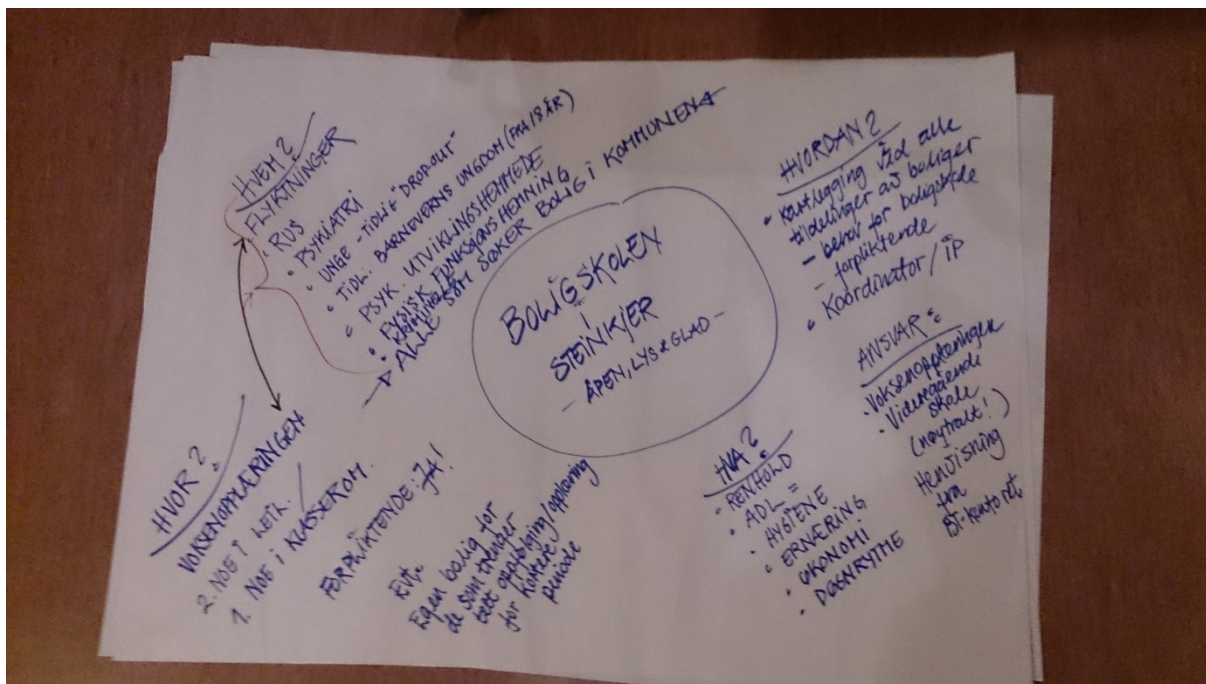 BOLIGSKOLEN
i
STEINKJER
– ÅPEN, LYS & GLAD –
HVEM?
FLYKTNINGER
• RUS
• PSYKIATRI
• UNGE - TIDLIG "DROPOUT"
• TIDL. BARNEVERNS UNGDOM (FRA 18 ÅR)
• PSYK. UTVIKLINGSHEMMEDE
• FYSISK FUNKSJONSHEMNING
• KRIMINELLE
→ ALLE SOM SØKER BOLIG I KOMMUNEN
HVORDAN?
• Kartlegging ved alle
tildelinger av boliger
– behov for boligskole
– forpliktende
• Koordinator / IP
ANSVAR:
• Voksenopplæringen
• Videregående
skole
(nøytralt!)
Henvisning
fra
BT-kontoret
HVA?
• RENHOLD
• ADL =
• HYGIENE
• ERNÆRING
• ØKONOMI
• DØGNRYTME
HVOR?
VOKSENOPPLÆRINGEN
2. NOE I LEIR.
1. NOE I KLASSEROM.
FORPLIKTENDE: JA!
Evt.
Egen bolig for
de som trenger
tett oppfølging/opplæring
for kortere
periode